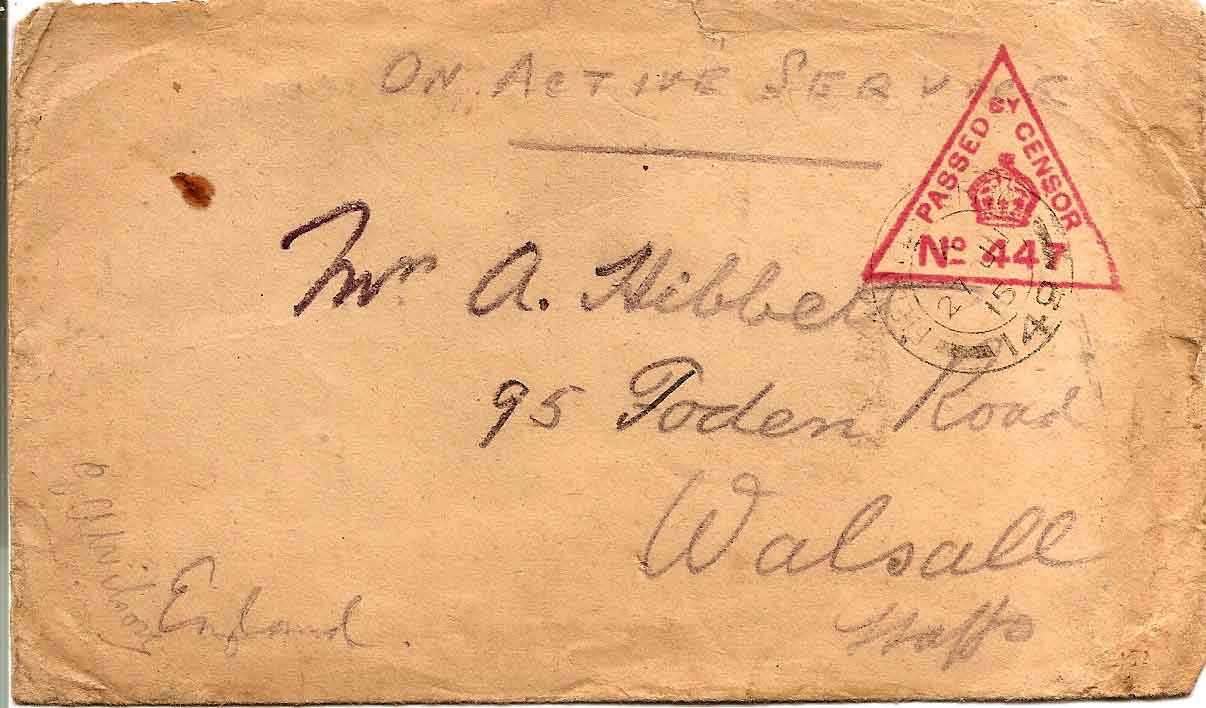 ON ACTIVE SERVICE
PASSED BY CENSOR
No 447
27 15
149
Mr A. Hibbett
95 Foden Road
Walsall
Staffs
England.